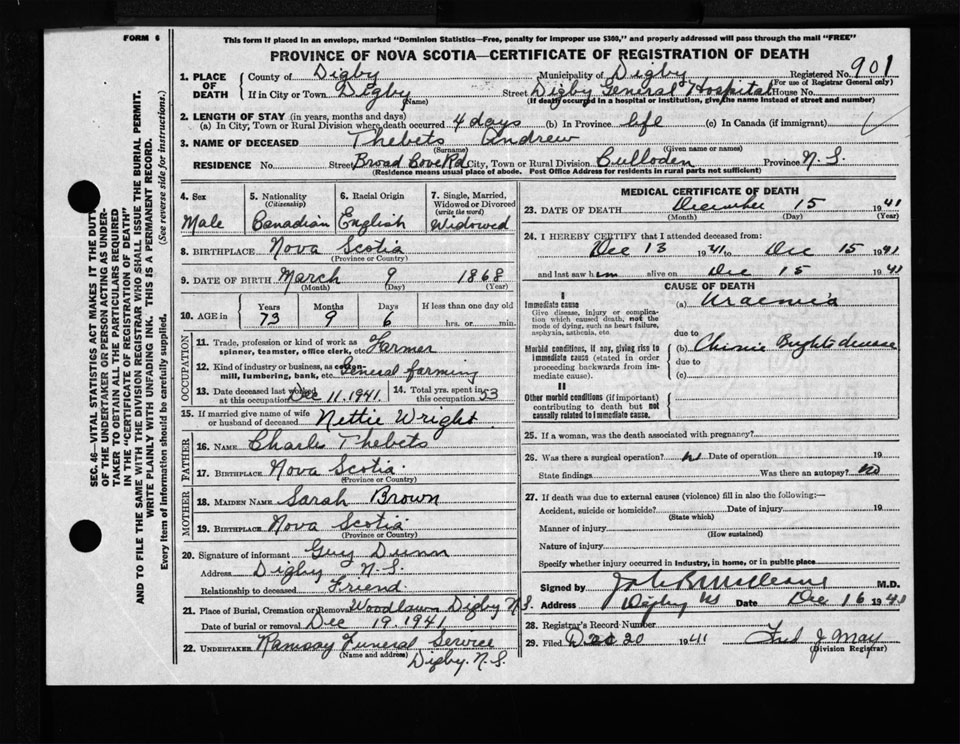 FORM 6
This form if placed in an envelope, marked "Dominion Statistics—Free, penalty for improper use $300," and properly addressed will pass through the mail "FREE"
PROVINCE OF NOVA SCOTIA—CERTIFICATE OF REGISTRATION OF DEATH
SEC. 46—VITAL STATISTICS ACT MAKES IT THE DUTY
OF THE UNDERTAKER OR PERSON ACTING AS UNDER-
TAKER TO OBTAIN ALL THE PARTICULARS REQUIRED
IN THE "CERTIFICATE OF REGISTRATION OF DEATH"
AND TO FILE THE SAME WITH THE DIVISION REGISTRAR WHO SHALL ISSUE THE BURIAL PERMIT.
WRITE PLAINLY WITH UNFADING INK. THIS IS A PERMANENT RECORD.
Every item of information should be carefully supplied. (See reverse side for instructions.)
1. PLACE OF DEATH
County of Digby Municipality of Digby Registered No. 901
(For use of Registrar General only)
If in City or Town Digby Street Digby General Hospital House No.
(Name) (If death occurred in a hospital or institution, give the name instead of street and number)
2. LENGTH OF STAY (in years, months and days)
(a) In City, Town or Rural Division where death occurred 4 days (b) In Province life (c) In Canada (if immigrant)
3. NAME OF DECEASED Thebets Andrew
(Surname) (Given name or names)
RESIDENCE No. Street Broad Cove Rd City, Town or Rural Division Culloden Province N.S.
(Residence means usual place of abode. Post Office Address for residents in rural parts not sufficient)
4. Sex Male
5. Nationality (Citizenship) Canadian
6. Racial Origin English
7. Single, Married, Widowed or Divorced (write the word) Widowed
8. BIRTHPLACE Nova Scotia
(Province or Country)
9. DATE OF BIRTH March 9 1868
(Month) (Day) (Year)
10. AGE in Years 73 Months 9 Days 6 If less than one day old hrs. or min.
OCCUPATION
11. Trade, profession or kind of work as spinner, teamster, office clerk, etc. Farmer
12. Kind of industry or business, as cotton-mill, lumbering, bank, etc. General farming
13. Date deceased last worked at this occupation Dec 11. 1941.
14. Total yrs. spent in this occupation 53
15. If married give name of wife or husband of deceased Nettie Wright
FATHER
16. NAME Charles Thebets
17. BIRTHPLACE Nova Scotia
(Province or Country)
MOTHER
18. MAIDEN NAME Sarah Brown
19. BIRTHPLACE Nova Scotia
(Province or Country)
20. Signature of informant Guy Dunn
Address Digby N.S.
Relationship to deceased Friend
21. Place of Burial, Cremation or Removal Woodlawn Digby N.S.
Date of burial or removal Dec 19. 1941
22. UNDERTAKER Ramsay Funeral Service
(Name and address) Digby. N.S.
MEDICAL CERTIFICATE OF DEATH
23. DATE OF DEATH December 15 1941
(Month) (Day) (Year)
24. I HEREBY CERTIFY that I attended deceased from:
Dec 13 1941 to Dec 15 1941
and last saw him alive on Dec 15 1941
CAUSE OF DEATH
I
Immediate cause (a) Uraemia
Give disease, injury or complication which caused death, not the mode of dying, such as heart failure, asphyxia, asthenia, etc.
due to
Morbid conditions, if any, giving rise to immediate cause (stated in order proceeding backwards from immediate cause).
(b) Chronic Brights disease
due to
(c)
II
Other morbid conditions (if important) contributing to death but not causally related to immediate cause.
25. If a woman, was the death associated with pregnancy?
26. Was there a surgical operation? Date of operation 19
State findings Was there an autopsy? no
27. If death was due to external causes (violence) fill in also the following:—
Accident, suicide or homicide? Date of injury 19
(State which)
Manner of injury
(How sustained)
Nature of injury
Specify whether injury occurred in industry, in home, or in public place
Signed by M.D.
Address Digby NS Date Dec 16 1941
28. Registrar's Record Number
29. Filed 20 1941 Fred J May
(Division Registrar)